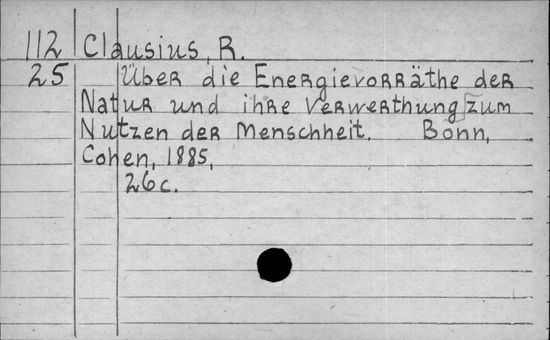 112 Clausius, R.
25 Über die Energievorräthe der
Natur und ihre Verwerthung zum
Nutzen der Menschheit. Bonn,
Cohen, 1885,
26 c.